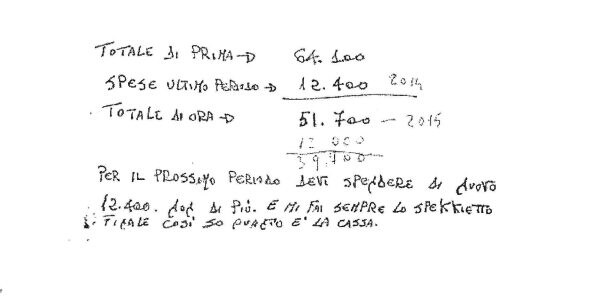 TOTALE DI PRIMA → 64.100
SPESE ULTIMO PERIODO → 12.400 2014
TOTALE DI ORA → 51.700 – 2015
12 000
39 700
PER IL PROSSIMO PERIODO DEVI SPENDERE DI NUOVO
12.400. NON DI PIÙ. E MI FAI SEMPRE LO SPEKKIETTO
FINALE COSI' SO QUANTO E' LA CASSA.